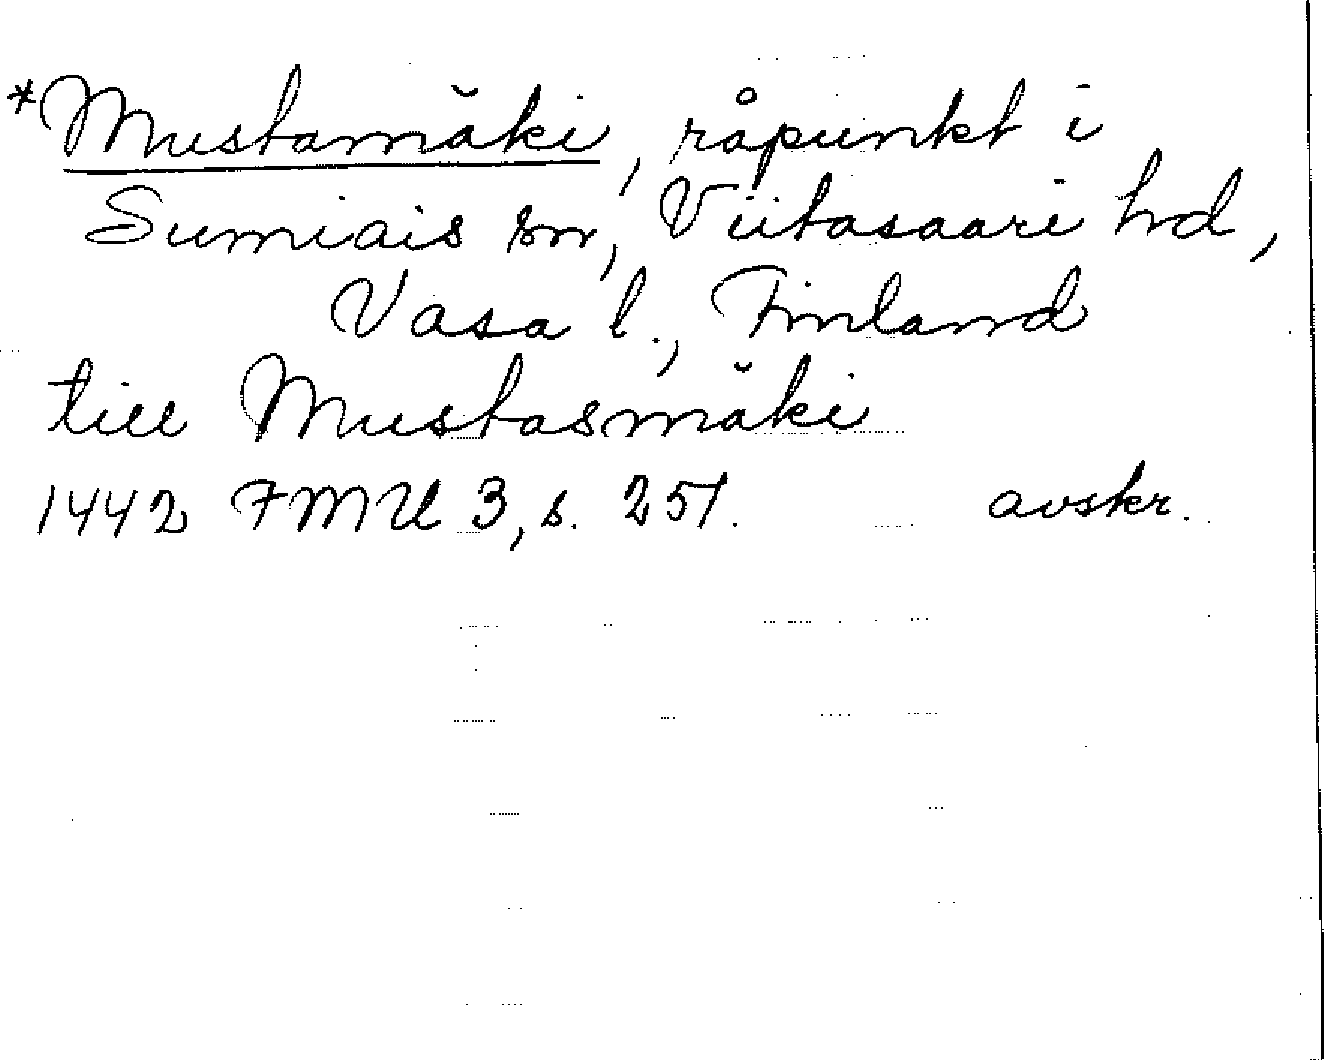 *Mustamäki, råpunkt i
Sumiais sn, Viitasaari hd,
Vasa l., Finland
till Mustasmäki
1442 FMU 3, s. 251. avskr.